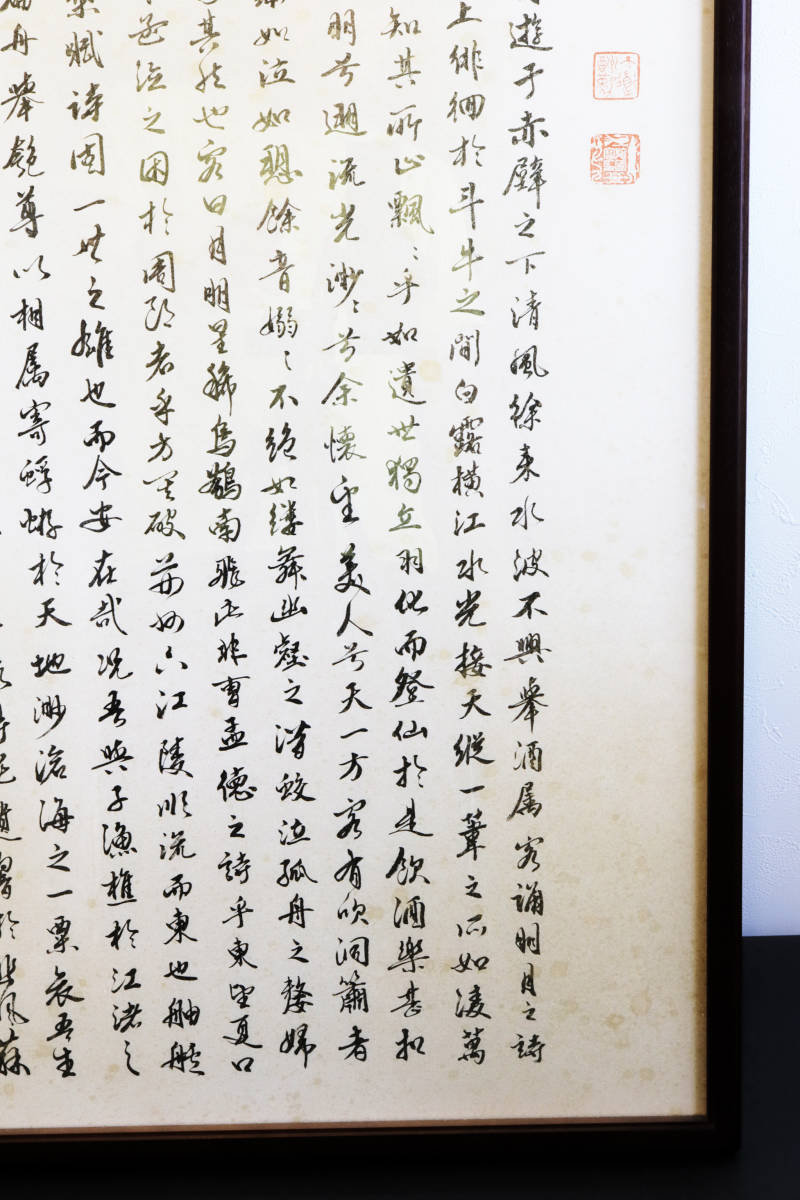 遊于赤壁之下清風徐来水波不興舉酒属客誦明月之詩
上徘徊於斗牛之間白露橫江水光接天縱一葦之所如凌萬
知其所止飄〻乎如遺世獨立羽化而登仙於是飲酒樂甚扣
明兮遡流光渺〻兮余懷望美人兮天一方客有吹洞簫者
如泣如愬餘音嫋〻不絕如縷舞幽壑之潛蛟泣孤舟之嫠婦
其然也客曰月明星稀烏鵲南飛此非曹孟德之詩乎東望夏口
孟德之困於周郎者乎方其破荊州下江陵順流而東也舳艫
賦詩固一世之雄也而今安在哉況吾與子漁樵於江渚之
舟舉匏尊以相属寄蜉蝣於天地渺滄海之一粟哀吾生
遺響於悲風蘇